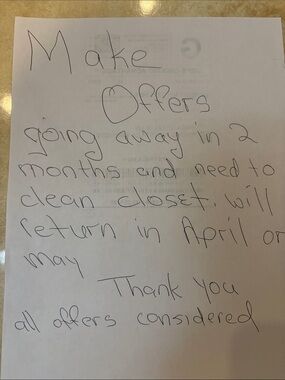 Make
Offers
going away in 2
months and need to
clean closet. will
return in April or
may
Thank you
all offers considered